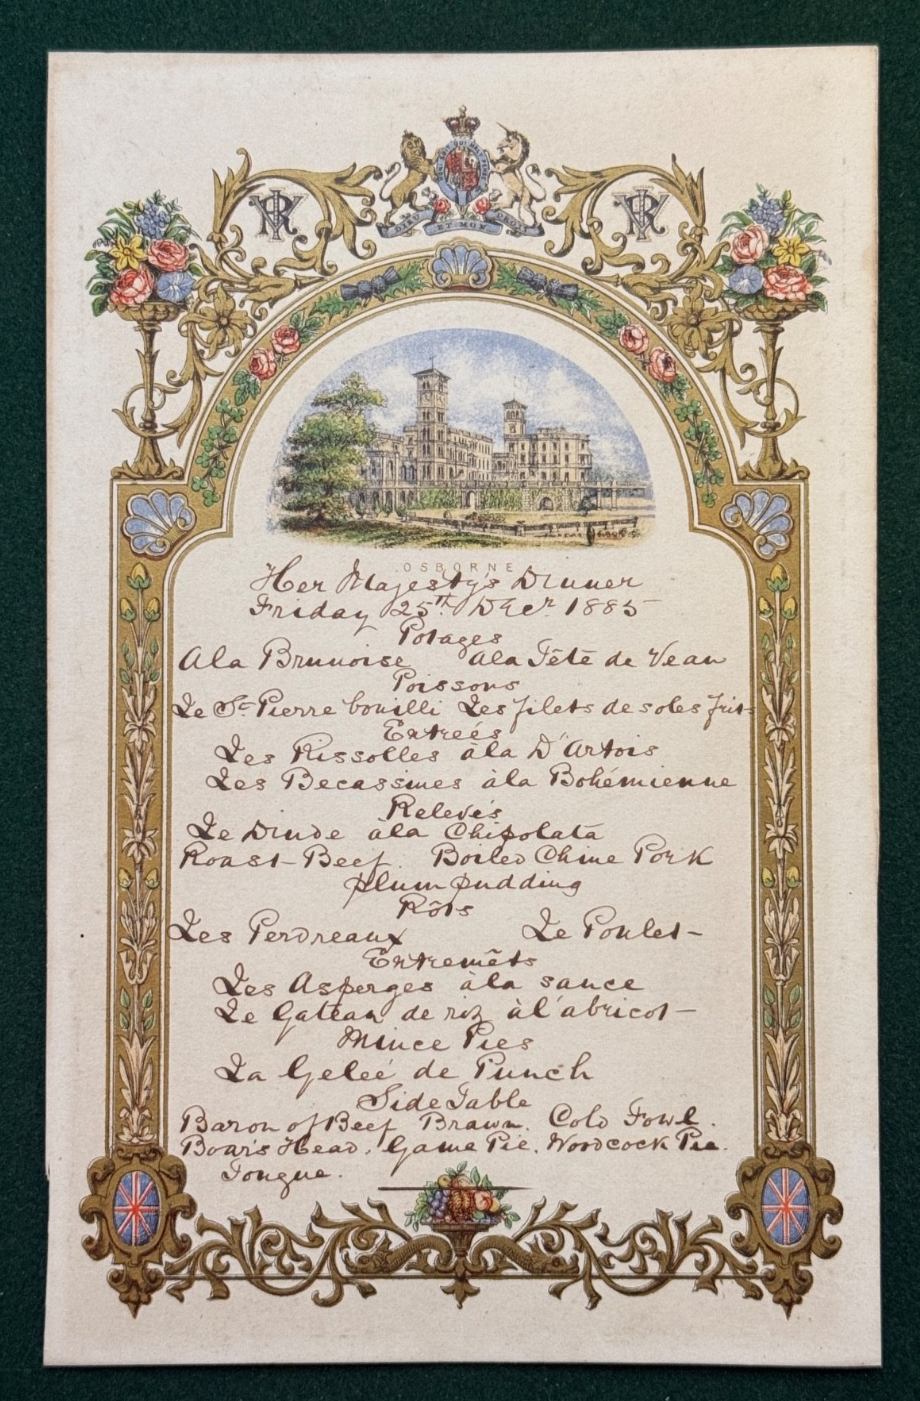 VRI VRI
DIEU ET MON
OSBORNE
Her Majesty's Dinner
Friday 25th Decr 1885
Potages
A la Brunoise A la Tété de Veau
Poissons
Le St Pierre bouilli Les filets de soles frits
Entreés
Les Rissolles à la D'Artois
Les Becassines à la Bohémienne
Relevés
Le Dinde a la Chipolata
Roast Beef. Boiled Chine Pork
Plum pudding
Rôts
Les Perdreaux Le Poulet
Entremêts
Les Asperges à la sauce
Le Gateau de riz à l'abricot
Mince Pies
La Geleé de Punch
Side Table
Baron of Beef Brawn. Cold Fowl.
Boar's Head. Game Pie. Woodcock Pie.
Tongue.